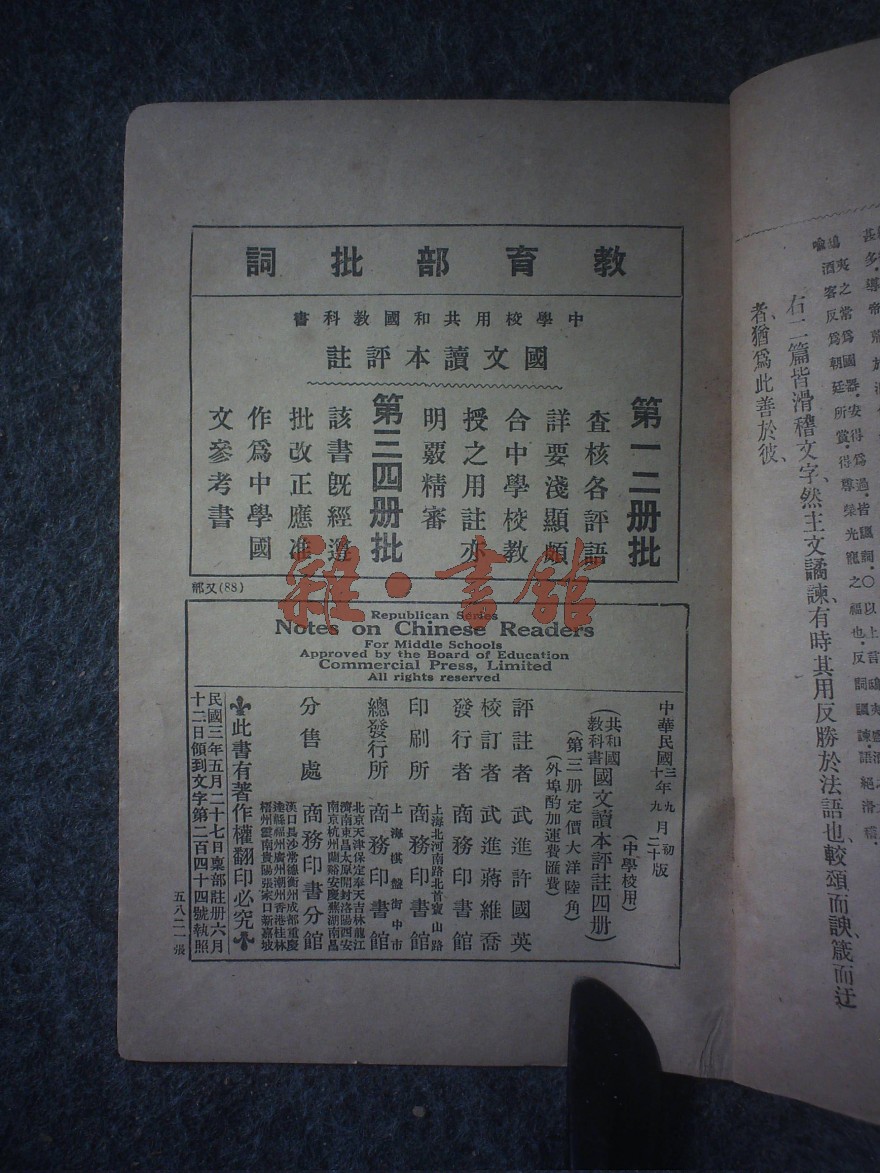 教育部批詞
中學校用共和國教科書
國文讀本評註
第一二册批
查核各評語
詳要淺顯頗
合中學校教
授之用註亦
明覈精審
第三四册批
該書旣經遵
批改正應准
作爲中學國
文參考書
(88)又部
雜·書館
Republican Series
Notes on Chinese Readers
For Middle Schools
Approved by the Board of Education
Commercial Press, Limited
All rights reserved
中華民國三年九月初版
十年九月二十版
(中學校用)
(共和國教科書國文讀本評註四册)
(第三册定價大洋陸角)
(外埠酌加運費匯費)
評註者 武進許國英
校訂者 武進蔣維喬
發行者 商務印書館
印刷所 上海北河南路北首寶山路 商務印書館
總發行所 上海棋盤街中市 商務印書館
分售處 商務印書分館
北京天津保定奉天吉林龍江
濟南東昌太原開封洛陽西安
南京杭州蘭谿安慶蕪湖南昌
漢口長沙常德衡州成都重慶
達縣福州廣州潮州香港桂林
梧州雲南貴陽張家口新嘉坡
此書有著作權翻印必究
民國三年五月二十七日稟部註册六月
十二日領到文字第二百四十四號執照
五八二一張
喻
酒客反爲朝廷所賞得尊榮光寵之福也反詞諷諫語絕滑稽
右二篇皆滑稽文字、然主文譎諫、有時其用反勝於法語也、較頌而諛、箴而迂
者、猶爲此善於彼、